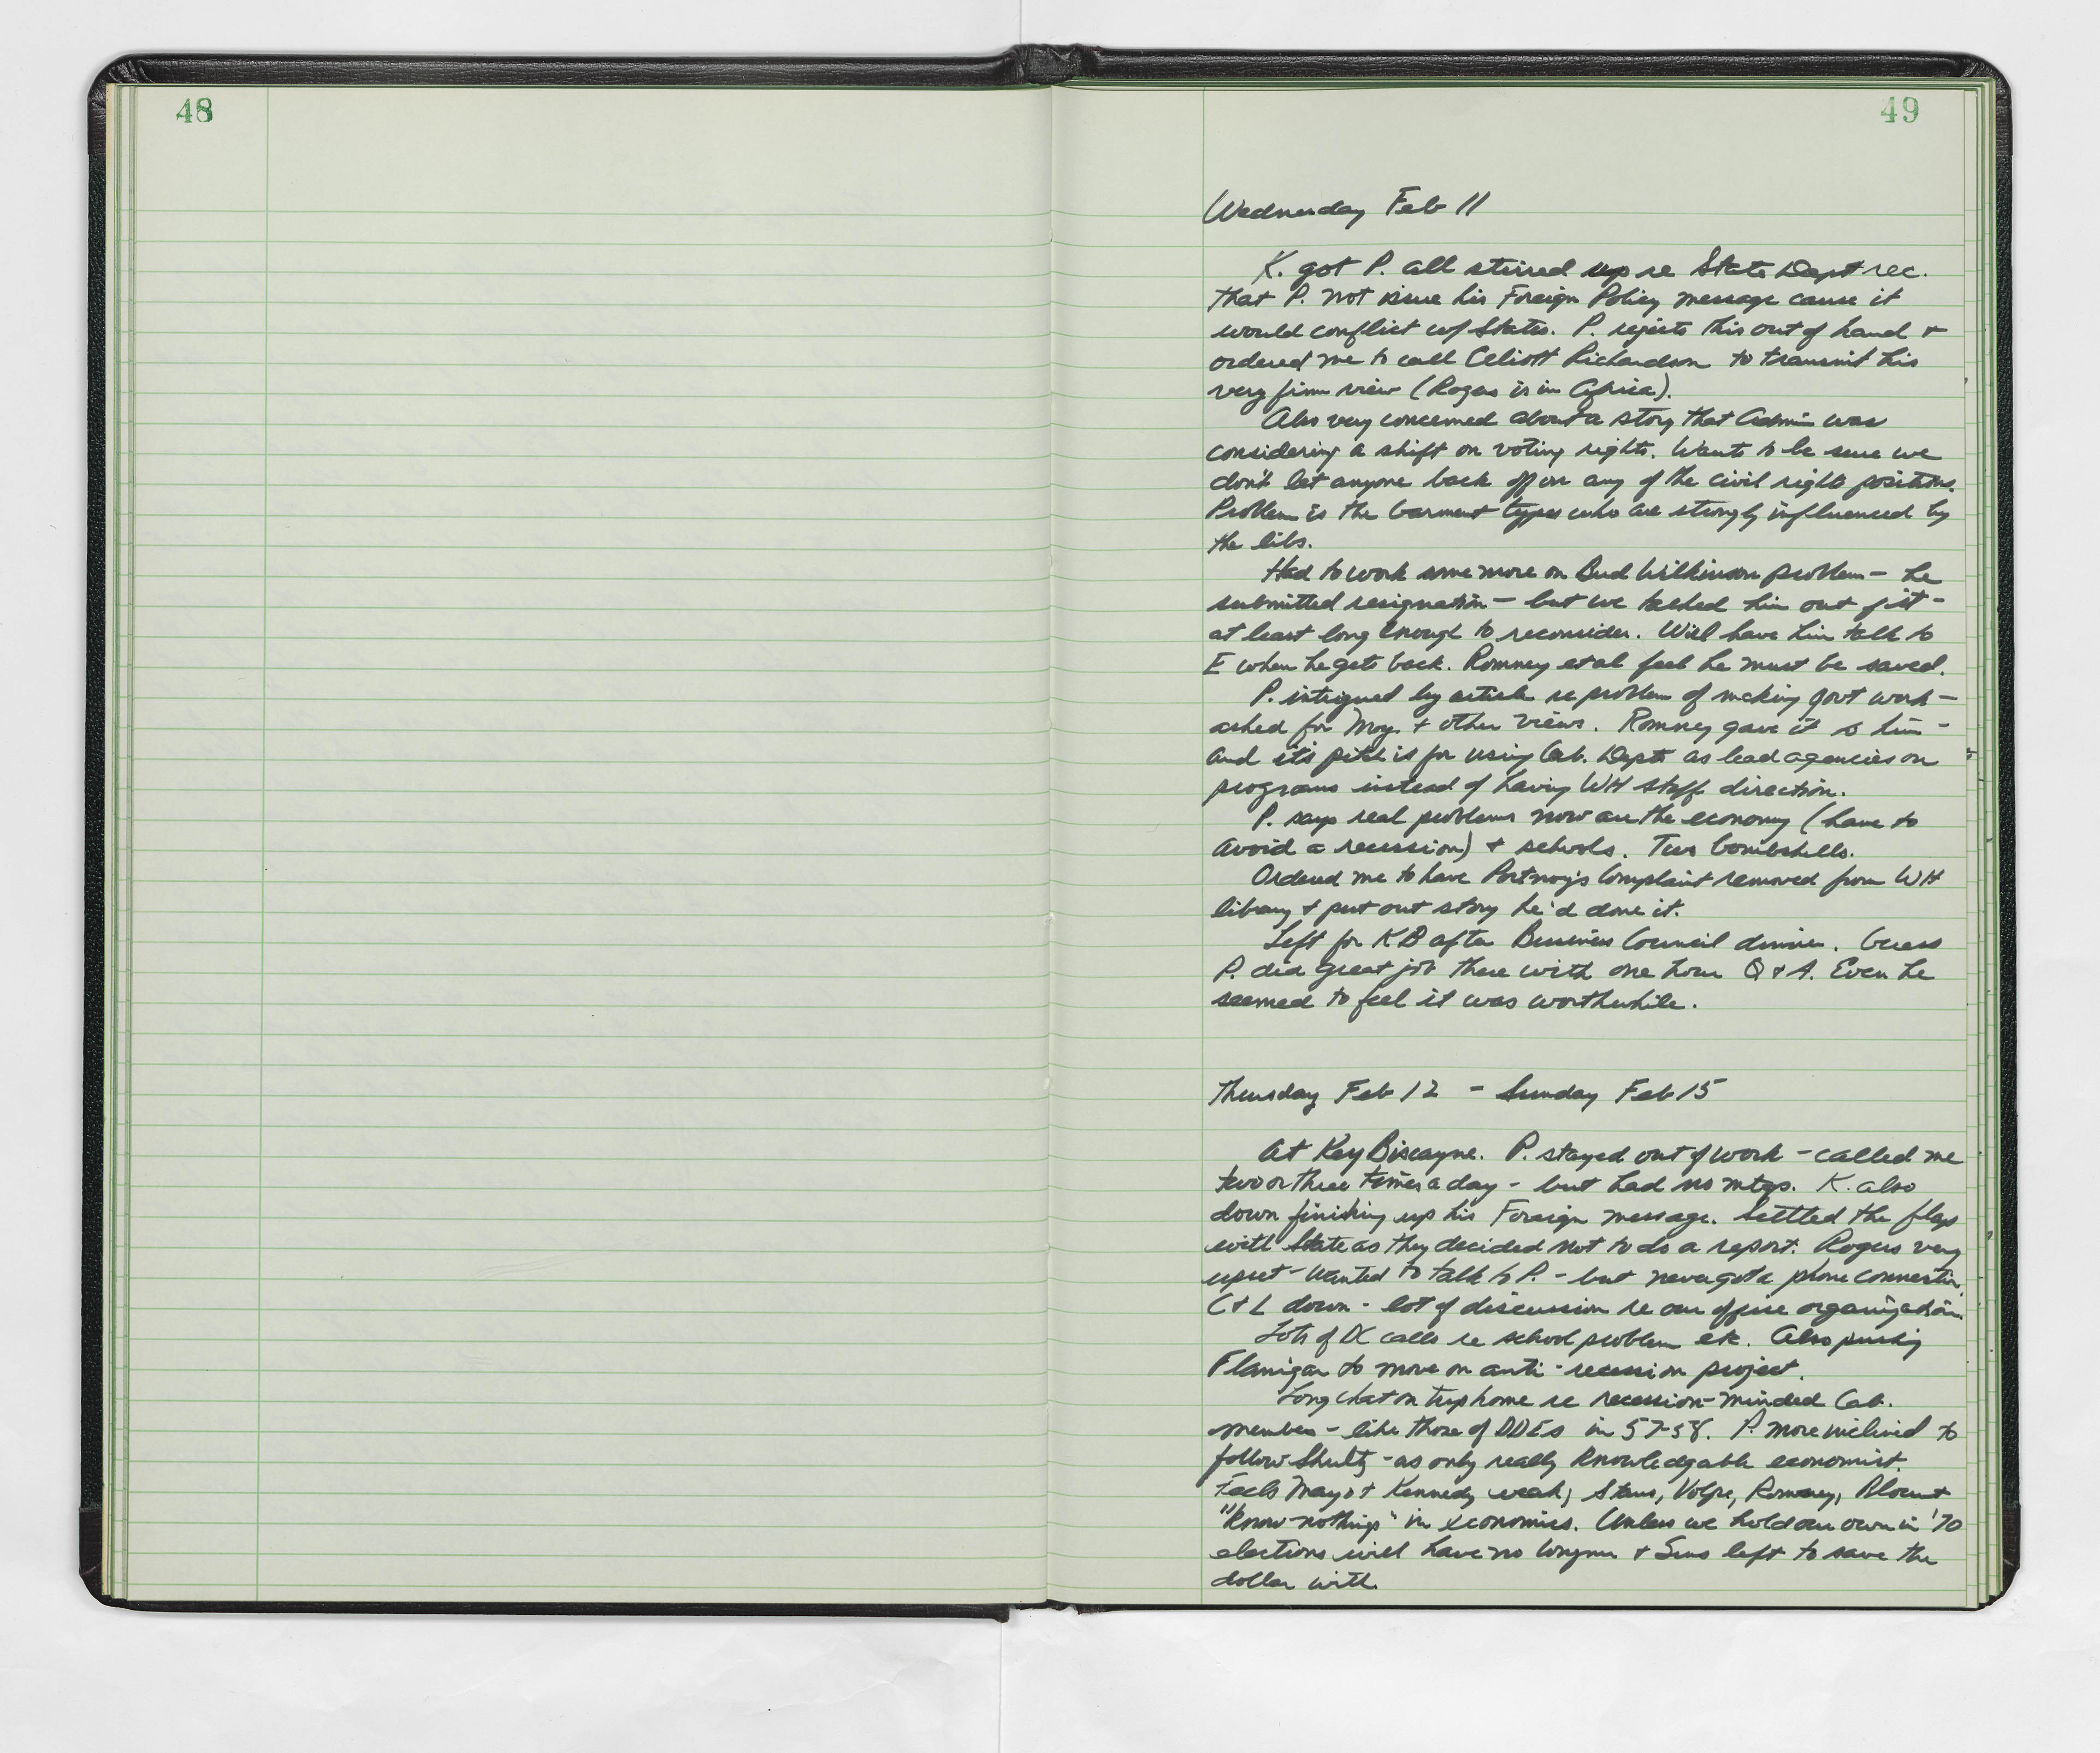 48
49
Wednesday Feb 11
K. got P. all stirred up re State Dept rec.
that P. not issue his Foreign Policy message cause it
would conflict w/ States. P. rejects this out of hand +
ordered me to call Elliott Richardson to transmit his
very firm view (Rogers is in Africa).
Also very concerned about a story that Admin was
considering a shift on voting rights. Wants to be sure we
don't let anyone back off on any of the civil rights positions.
Problem is the Garment types who are strongly influenced by
the libs.
Had to work some more on Bud Wilkinson problem - he
submitted resignation - but we talked him out of it -
at least long enough to reconsider. Will have him talk to
E when he gets back. Romney et al feel he must be saved.
P. intrigued by article re problem of making govt work -
asked for Moy. + other views. Romney gave it to him -
and its pitch is for using Cab. Depts as lead agencies on
programs instead of having WH staff direction.
P. says real problems now are the economy (have to
avoid a recession) + schools. Two bombshells.
Ordered me to have Portnoy's Complaint removed from WH
library + put out story he'd done it.
Left for KB after Business Council dinner. Guess
P. did great job there with one hour Q + A. Even he
seemed to feel it was worthwhile.
Thursday Feb 12 - Sunday Feb 15
At Key Biscayne. P. stayed out of work - called me
two or three times a day - but had no mtgs. K. also
down finishing up his Foreign message. Settled the flap
with State as they decided not to do a report. Rogers very
upset - wanted to talk to P. - but never got a phone connection.
C + L down - lot of discussion re our office organization.
Lots of DC calls re school problem etc. Also pushing
Flanigan to move on anti-recession project.
Long chat on trip home re recession-minded Cab.
members - like those of DDEs in 57-58. P. more inclined to
follow Shultz - as only really knowledgable economist.
Feels Mayo + Kennedy weak; Stans, Volpe, Romney, Blount
"know-nothings" in economics. Unless we hold our own in '70
elections will have no Congmn + Sens left to save the
dollar with.